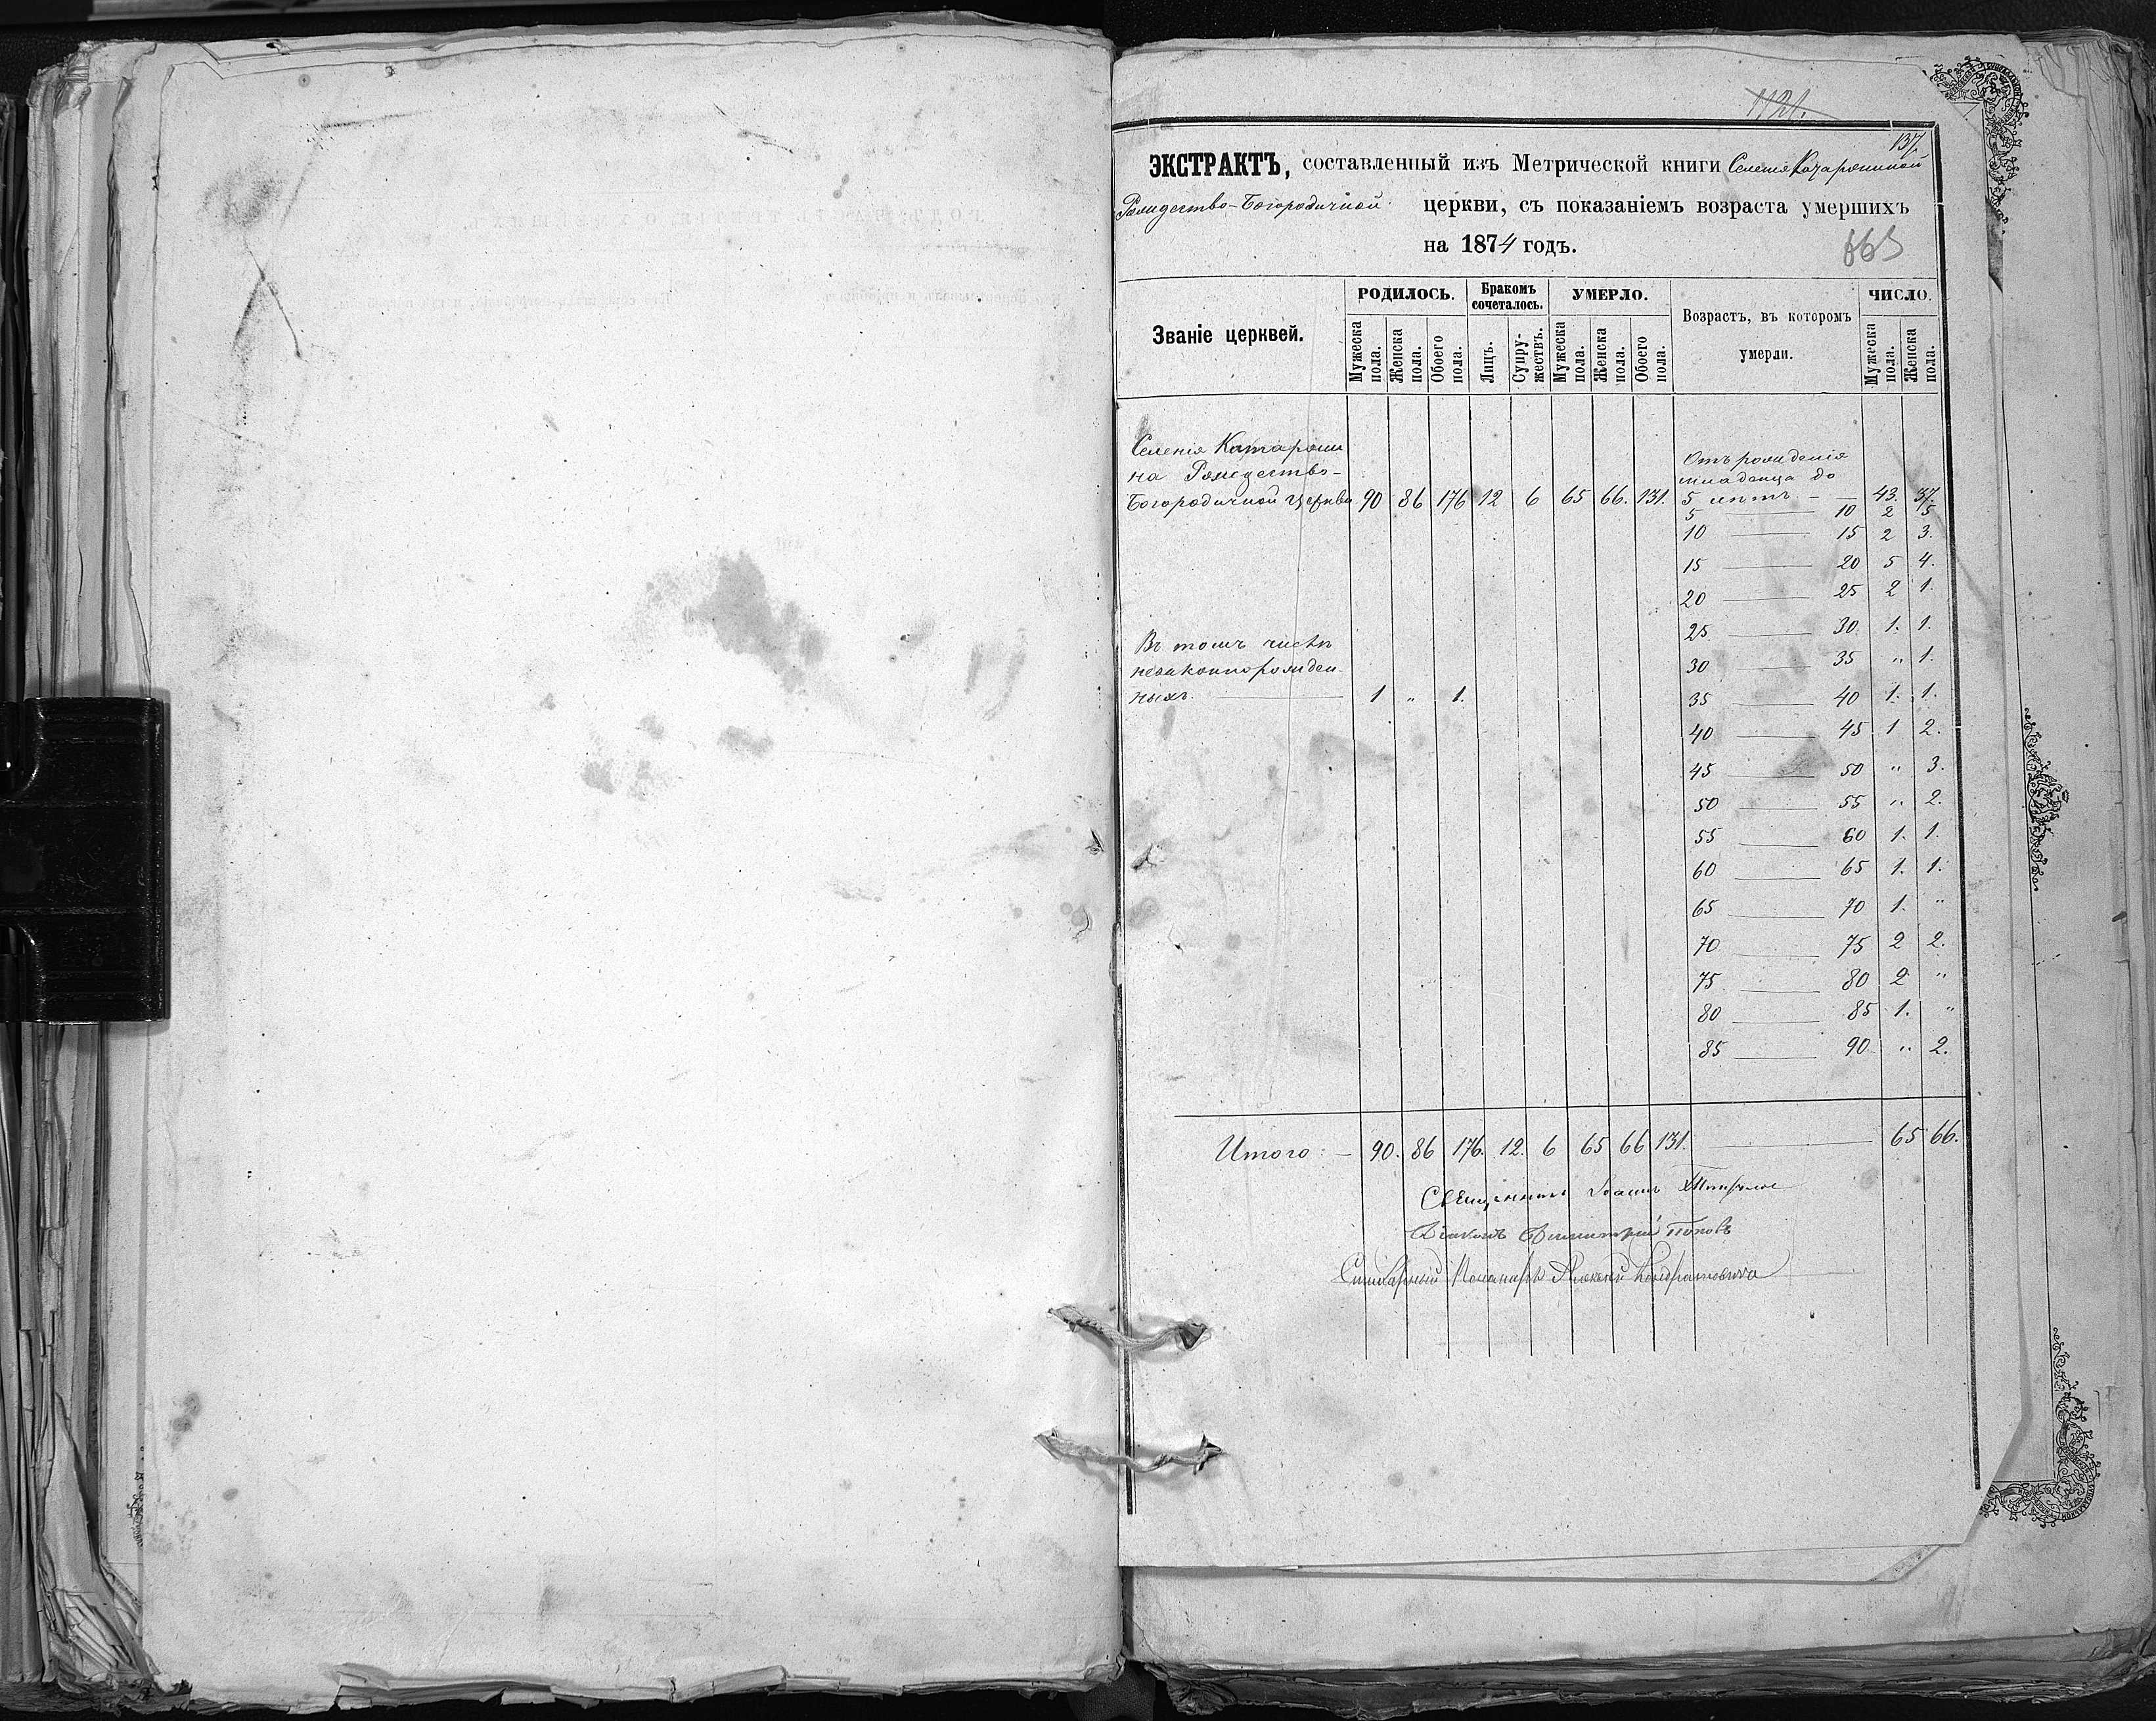 1121.
137.
ЭКСТРАКТЪ, составленный изъ Метрической книги Селенія
Рождество-Богородичной церкви, съ показаніемъ возраста умершихъ
на 1874 годъ.
Званіе церквей.
РОДИЛОСЬ.
Мужеска пола.
Женска пола.
Обоего пола.
Бракомъ
сочеталось.
Лицъ.
Супру-жествъ.
УМЕРЛО.
Мужеска пола.
Женска пола.
Обоего пола.
Возрастъ, въ которомъ
умерли.
ЧИСЛО.
Мужеска пола.
Женска пола.
Селенія Катароши
на Рождество-
Богородичной церкви 90 86 176 12 6 65 66. 131.
Отъ рожденія
младенца до
5 лѣтъ — — 43. 37.
5 — 10 2 5
10 — 15 2 3.
15 — 20 5 4.
20 — 25 2 1.
25. — 30. 1. 1.
30 — 35 " 1.
35 — 40 1. 1.
40 — 45 1 2.
45 — 50 " 3.
50 — 55 " 2.
55 — 60 1. 1.
60 — 65 1. 1.
65 — 70 1. "
70 — 75 2 2.
75 — 80 2 "
80 — 85 1. "
85 — 90 " 2.
Въ томъ числѣ
незаконнорожден-
ныхъ. — 1 " 1.
Итого: — 90. 86 176. 12. 6 65 66 131. — 65 66.
Священникъ Іоаннъ
Діаконъ Димитрій Поповъ
Стихарный Пономарь Алексѣй Кондратовичъ